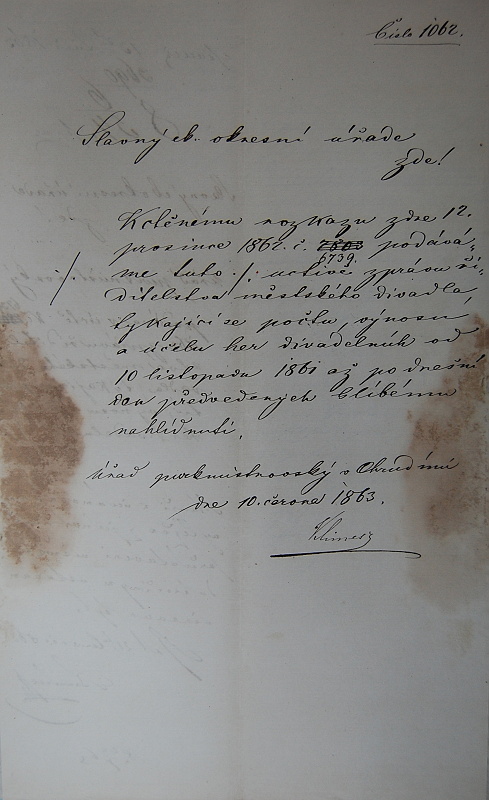 Číslo 1062.
Slavný ck. okresní úřade
zde!
Ku ctěnému rozkazu zdne 12.
prosince 1862. č. 5739. podává-
me tuto ./: uctivě zprávu ři-
ditelstva městského divadla,
týkající se počtu, výnosu,
a účelu her divadelních od
10 listopadu 1861 až po dnešní
den předvedených k
nahlídnutí.
Úřad purkmistrovský v Chrudimi
dne 10. června 1863.